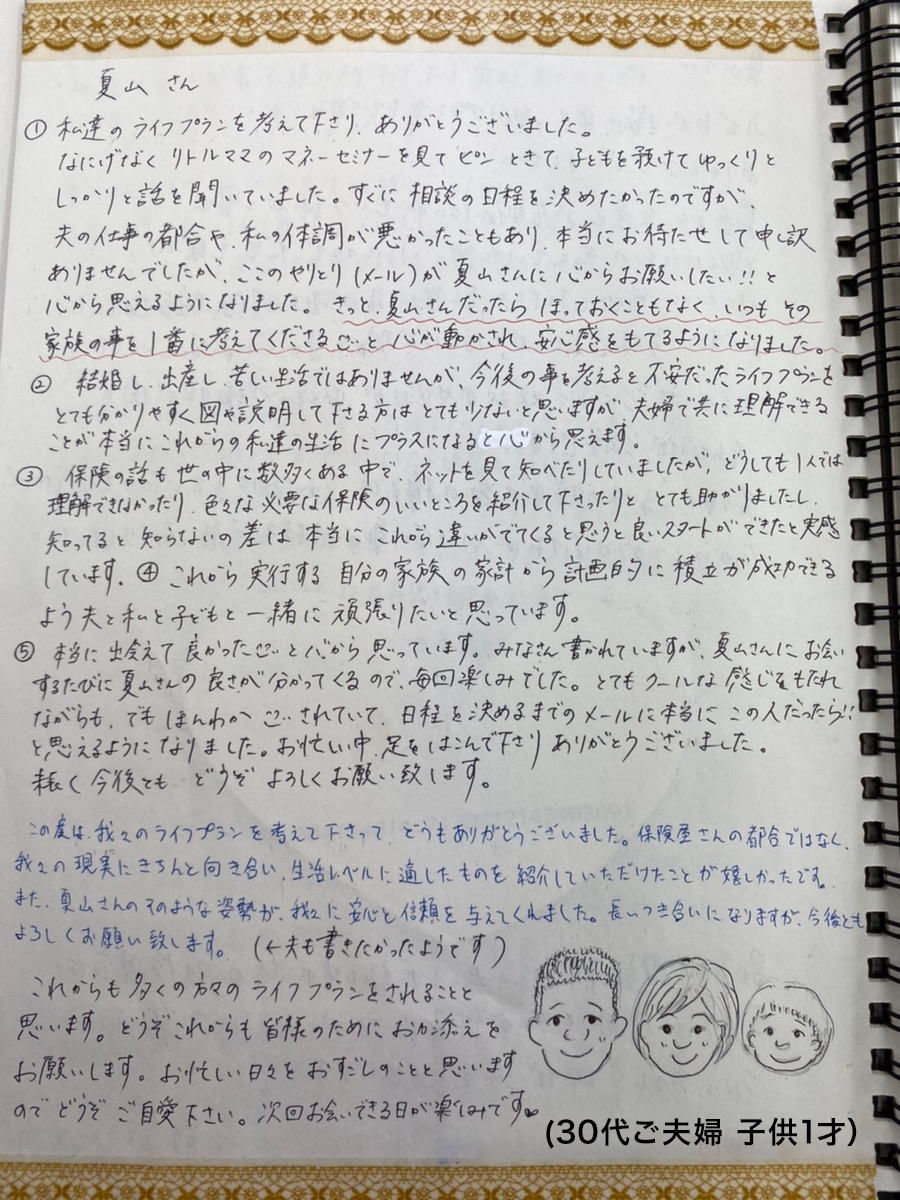 夏山 さん
① 私達の ライフプランを 考えて下さり、ありがとうございました。
なにげなく リトルママの マネーセミナーを 見て ピン ときて、子どもを 預けて ゆっくりと
しっかりと 話を 聞いていました。すぐに 相談の日程を 決めたかったのですが、
夫の仕事の都合や、私の体調が悪かったこともあり、本当に お待たせして 申し訳
ありませんでしたが、ここのやりとり(メール)が 夏山さんに 心からお願いしたい!! と
心から思えるようになりました。きっと、夏山さんだったら ほっておくこともなく、いつも その
家族の事を 1番に考えてくださる…と 心が動かされ、安心感をもてるようになりました。
② 結婚し、出産し、苦しい生活ではありませんが、今後の事を考えると 不安だったライフプランを
とても分かりやすく 図や説明して下さる方は とても少ないと思いますが 夫婦で共に理解できる
ことが本当にこれからの私達の生活 にプラスになると心から思えます。
③ 保険の話も 世の中に数多くある 中で、ネットを見て知べたりしていましたが、どうしても1人では
理解できなかったり、色々な 必要な保険の いいところを 紹介して下さったりと とても助かりましたし、
知ってると 知らないの 差は 本当に これから違いがでてくると思うと 良いスタートができたと実感
しています。④ これから 実行する 自分の家族の家計から 計画的に 積立が成功できる
よう 夫と私と子どもと 一緒に 頑張りたいと思っています。
⑤ 本当に 出会えて 良かった…と心から 思っています。みなさん書かれていますが、夏山さんにお会い
するたびに夏山さんの 良さが 分かってくるので、毎回楽しみでした。とてもクールな 感じをもたれ
ながらも、でも ほんわか …されていて、日程を決めるまでのメールに本当に この人だったら!!
と思えるようになりました。お忙しい中、足をはこんで下さり ありがとうございました。
末長く 今後とも どうぞ よろしくお願い致します。
この度は、我々のライフプランを考えて下さって、どうもありがとうございました。保険屋さんの都合ではなく、
我々の 現実にきちんと向き合い、生活レベルに適したものを 紹介していただけたことが 嬉しかったです。
また、夏山さんのそのような 姿勢が、我々に 安心と信頼を 与えてくれました。長いつき合いになりますが、今後とも
よろしくお願い致します。 (←夫も書きたかったようです)
これからも 多くの方々の ライフプランをされることと
思います。どうぞこれからも 皆様のために お力添えを
お願いします。お忙しい日々を おすごしのことと思います
ので どうぞ ご自愛下さい。次回お会いできる日が楽しみです♥
(30代ご夫婦 子供1才)